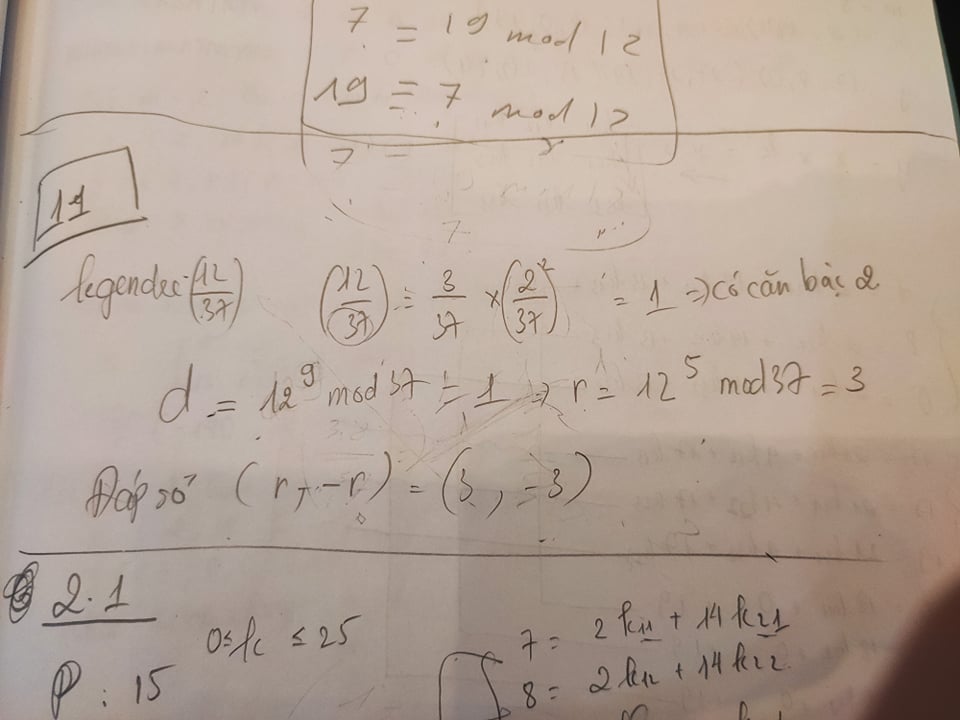 7 = 19 mod 12
19 ≡ 7 mod 12
7 =
11
legendre: (12/37) (12/37) = 3/37 × (2²/37) = 1 ⇒ có căn bậc 2
d = 12⁹ mod 37 = 1 ⇒ r = 12⁵ mod 37 = 3
Đáp số (r, -r) = (3, -3)
2.1
0 ≤ k ≤ 25
P : 15
7 = 2k₁₁ + 14k₂₁
8 = 2k₁₂ + 14k₂₂